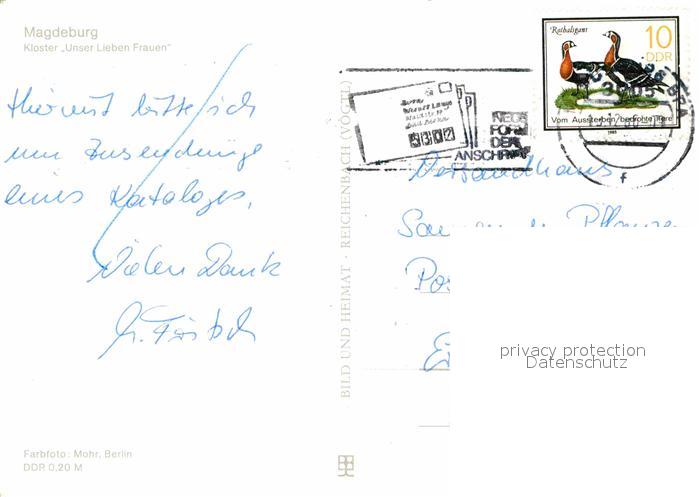 Magdeburg
Kloster „Unser Lieben Frauen"
Hiermit bitte ich
um Zusendung
eines Kataloges.
Vielen Dank
Farbfoto: Mohr, Berlin
DDR 0,20 M
BILD UND HEIMAT · REICHENBACH (VOGTL)
Rothalsgans
10
DDR
Vom Aussterben bedrohte Tiere
1985
NEUE
FORM
DER
ANSCHRIFT
f
Versandhaus
Pflanzen
privacy protection
Datenschutz